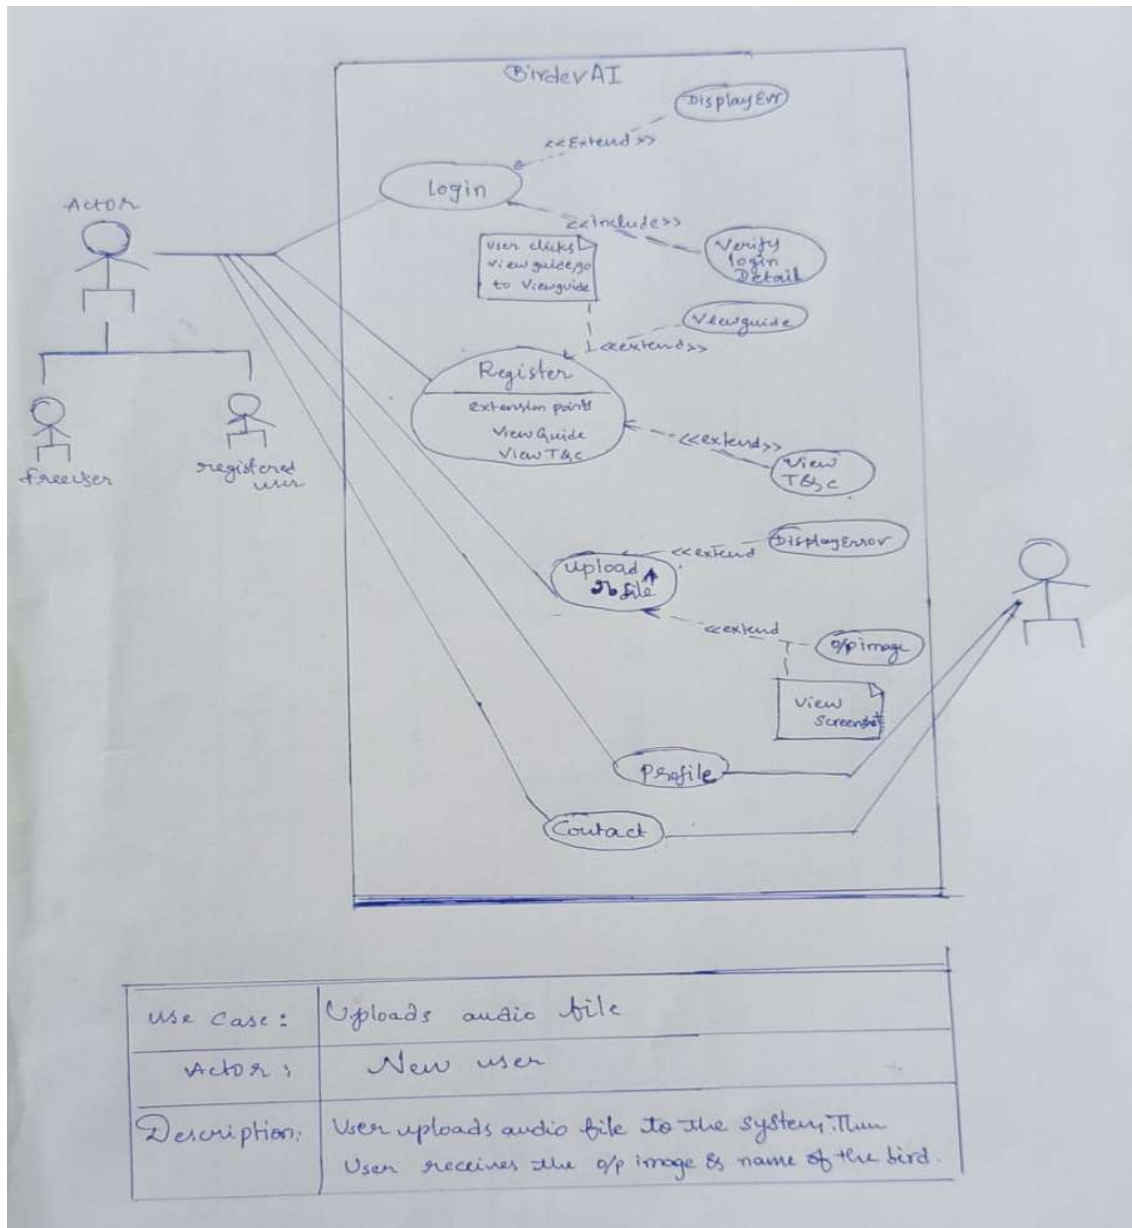 BirdevAI
DisplayErr
<<Extend>>
login
Actor
<<include>>
Verify
login
Detail
User clicks
view guide, go
to Viewguide
Viewguide
<<extend>>
Register
extension points
ViewGuide
View T&C
<<extend>>
View
T&C
freeuser
registered
user
DisplayError
<<extend
upload
file
<<extend
o/p image
View
Screenshot
Profile
Contact
Use Case: Uploads audio file
Actor: New user
Description: User uploads audio file to the system, Then
User receives the o/p image & name of the bird.